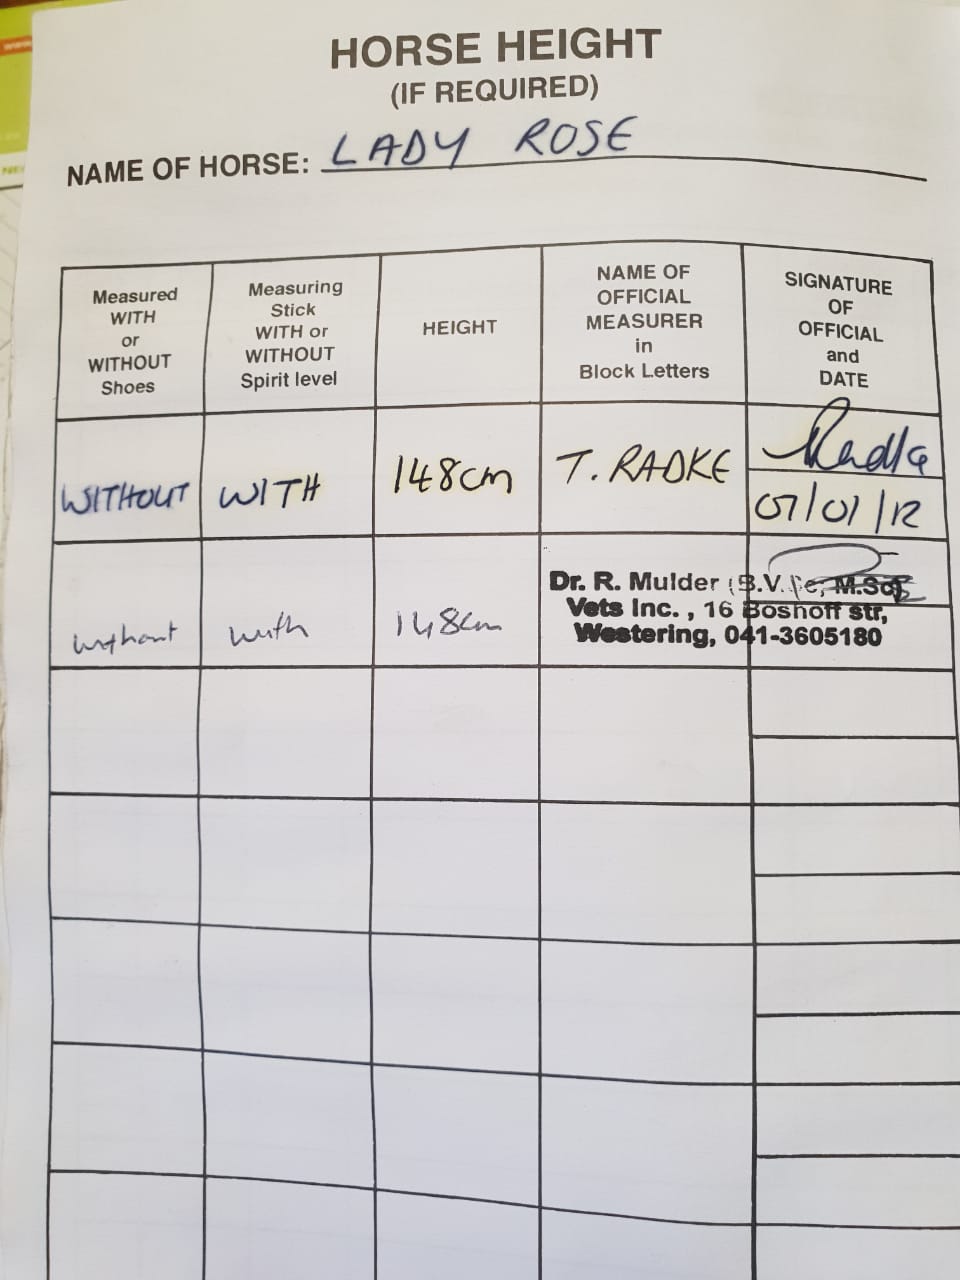 HORSE HEIGHT
(IF REQUIRED)
NAME OF HORSE: LADY ROSE
Measured
WITH
or
WITHOUT
Shoes
Measuring
Stick
WITH or
WITHOUT
Spirit level
HEIGHT
NAME OF
OFFICIAL
MEASURER
in
Block Letters
SIGNATURE
OF
OFFICIAL
and
DATE
WITHOUT
WITH
148cm
T. RADKE
Radke
07/01/12
without
with
148cm
Dr. R. Mulder (B.V.Sc, M.Sc)
Vets Inc. , 16 Boshoff str,
Westering, 041-3605180